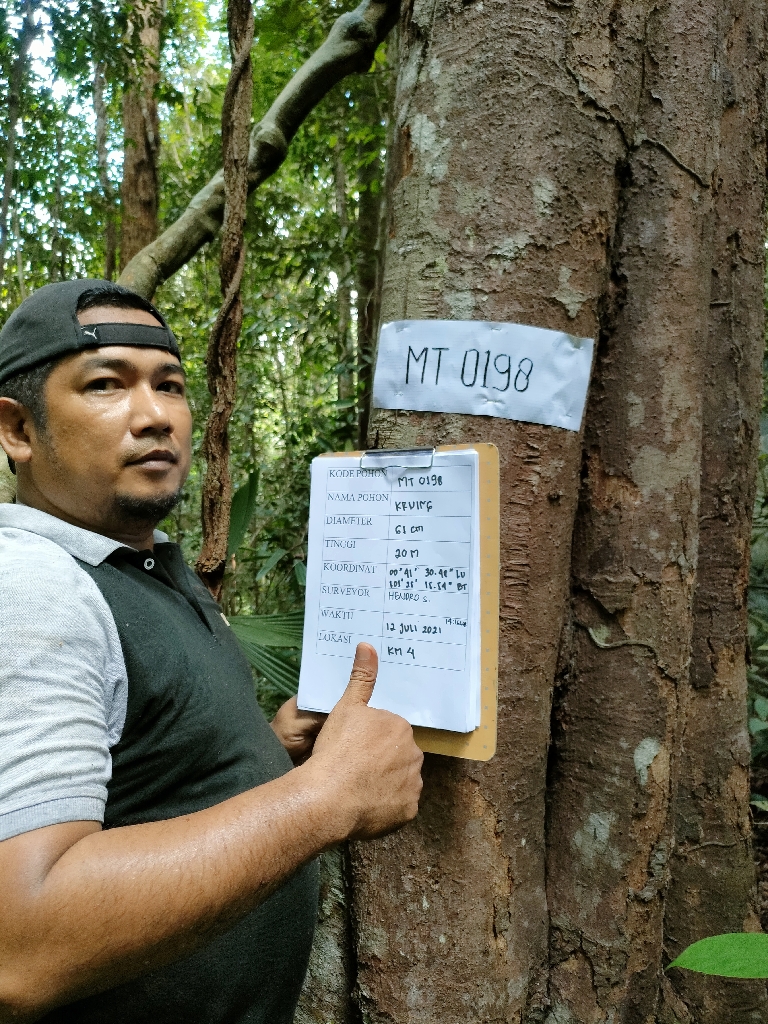 MT 0198
KODE POHON MT 0198
NAMA POHON KRUING
DIAMETER 61 cm
TINGGI 20 M
KOORDINAT 00° 41' 30.48" LU
101° 21' 15.54" BT
SURVEYOR HENDRO S.
WAKTU 12 JULI 2021
LOKASI KM 4